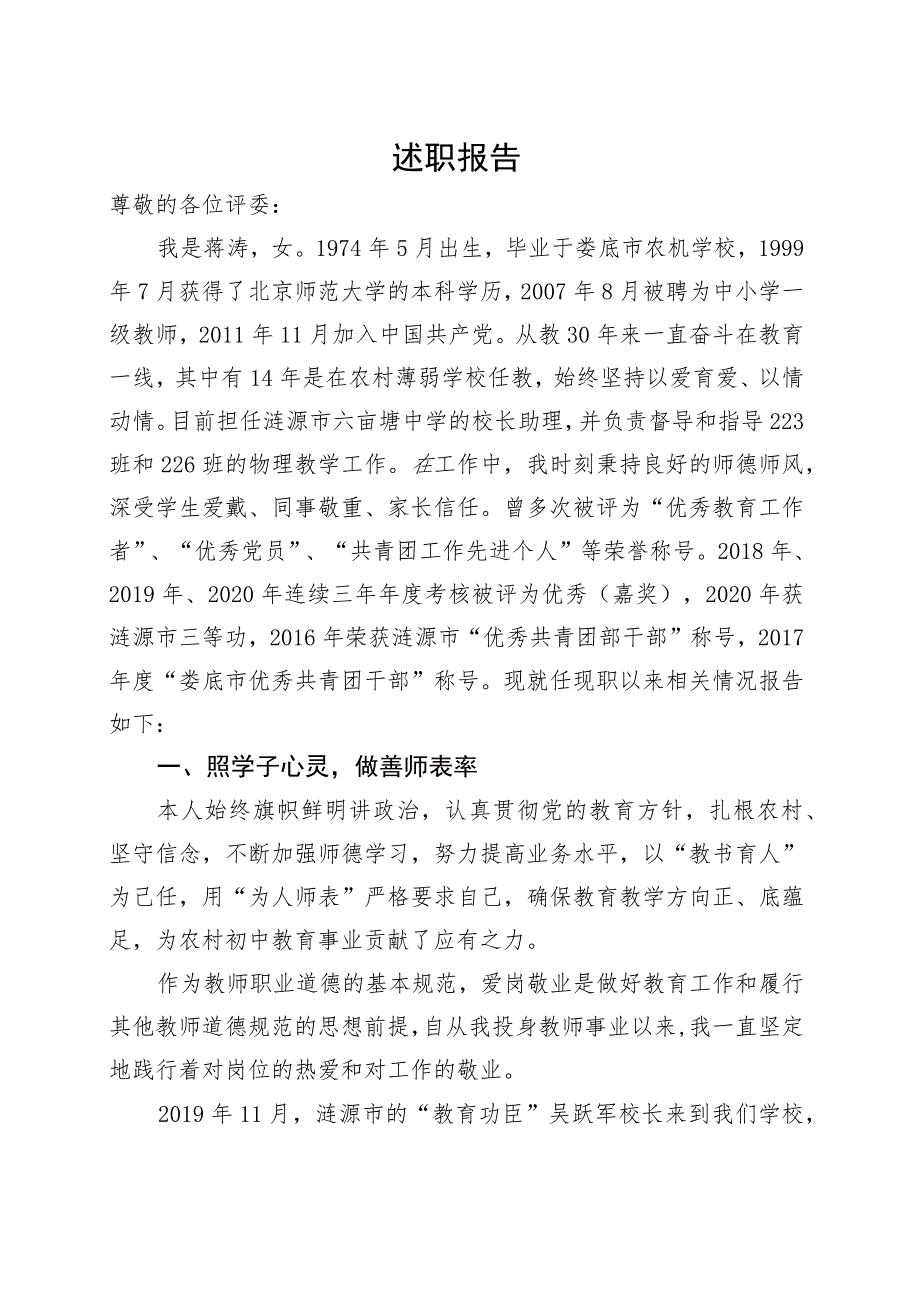 述职报告
尊敬的各位评委：
我是蒋涛，女。1974 年 5 月出生，毕业于娄底市农机学校，1999
年 7 月获得了北京师范大学的本科学历，2007 年 8 月被聘为中小学一
级教师，2011 年 11 月加入中国共产党。从教 30 年来一直奋斗在教育
一线，其中有 14 年是在农村薄弱学校任教，始终坚持以爱育爱、以情
动情。目前担任涟源市六亩塘中学的校长助理，并负责督导和指导 223
班和 226 班的物理教学工作。在工作中，我时刻秉持良好的师德师风，
深受学生爱戴、同事敬重、家长信任。曾多次被评为“优秀教育工作
者”、“优秀党员”、“共青团工作先进个人”等荣誉称号。2018 年、
2019 年、2020 年连续三年年度考核被评为优秀（嘉奖），2020 年获
涟源市三等功，2016 年荣获涟源市“优秀共青团部干部”称号，2017
年度“娄底市优秀共青团干部”称号。现就任现职以来相关情况报告
如下：
一、照学子心灵，做善师表率
本人始终旗帜鲜明讲政治，认真贯彻党的教育方针，扎根农村、
坚守信念，不断加强师德学习，努力提高业务水平，以“教书育人”
为己任，用“为人师表”严格要求自己，确保教育教学方向正、底蕴
足，为农村初中教育事业贡献了应有之力。
作为教师职业道德的基本规范，爱岗敬业是做好教育工作和履行
其他教师道德规范的思想前提，自从我投身教师事业以来,我一直坚定
地践行着对岗位的热爱和对工作的敬业。
2019 年 11 月，涟源市的“教育功臣”吴跃军校长来到我们学校，